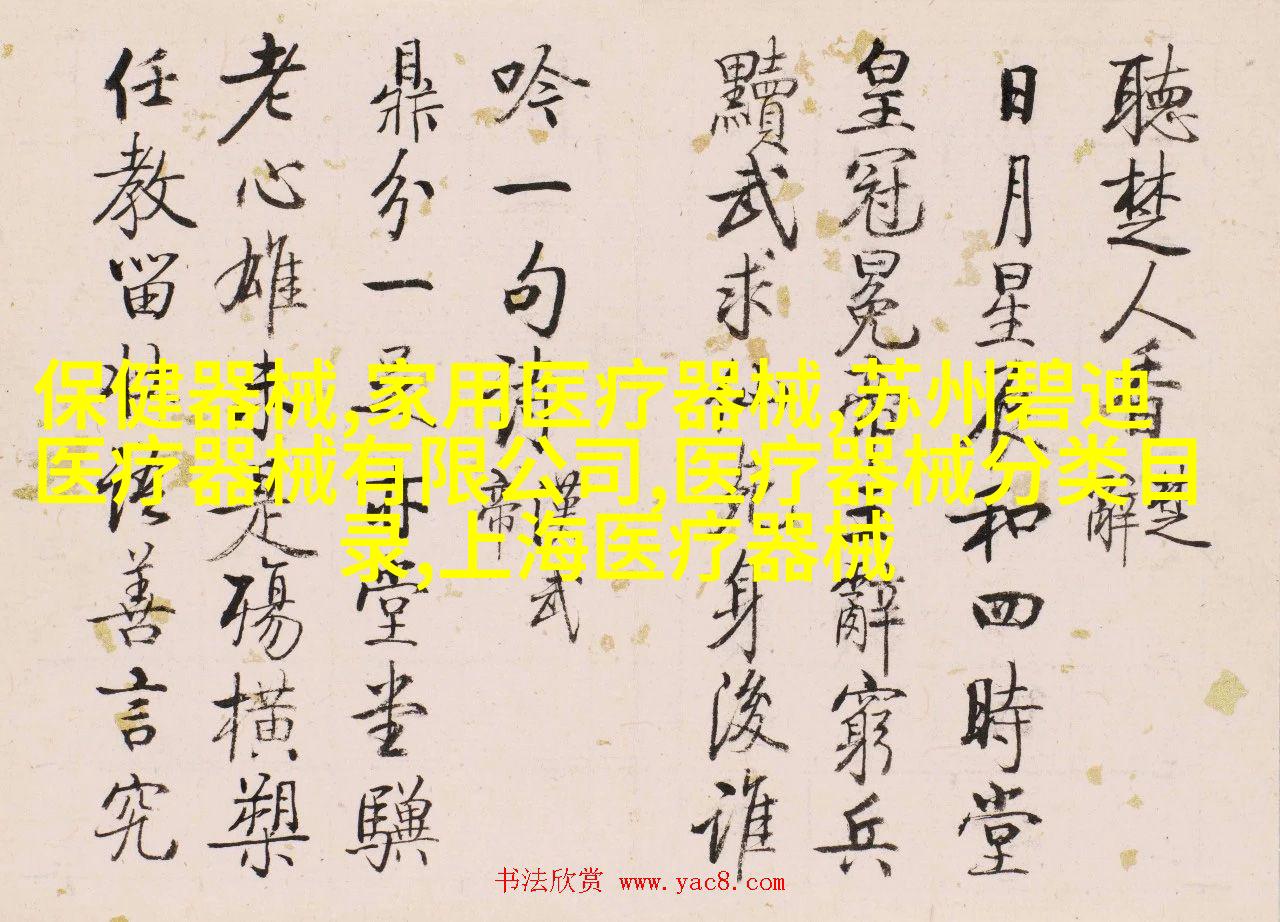 聽楚人
解
日月星辰和四時堂
皇冠冕帝辭窮兵
黷武求身後誰
吟一句詩
漢武
帝
鼎分一堂堂驥
老心雄未是殤橫槊
任教留善言究
保健器械,家用医疗器械,苏州碧迪
医疗器械有限公司,医疗器械分类目
录,上海医疗器械
书法欣赏 www.yac8.com